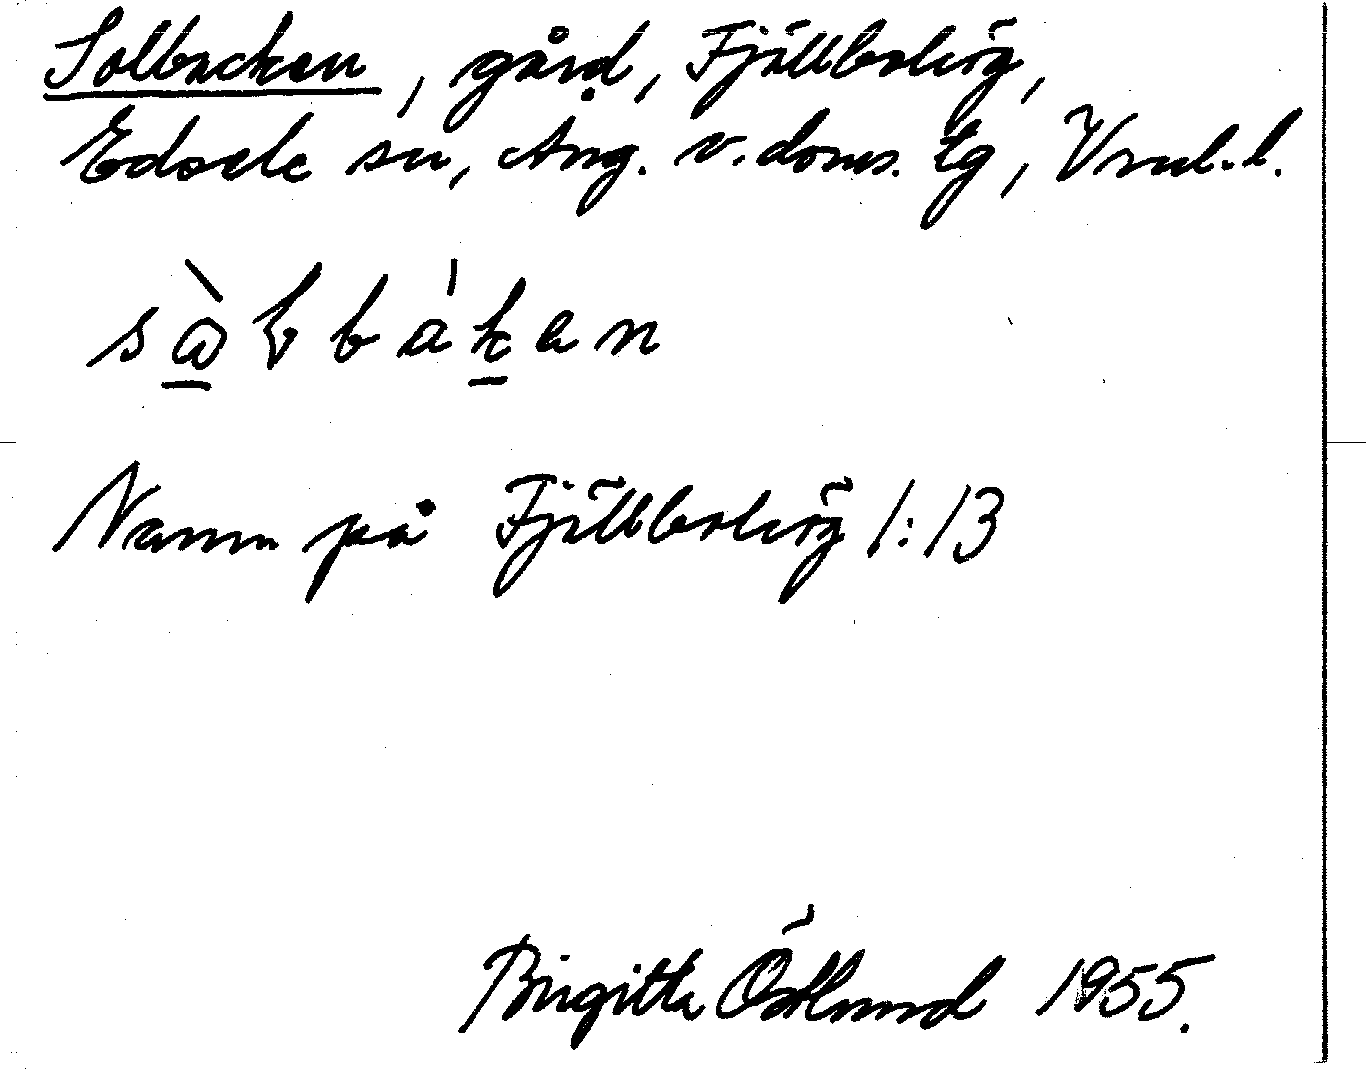 Solbacken, gård, Fjällbolörg,
Edsele sn, Ång. v. doms. tg, Vrnl. l.
Namn på Fjällbolörg 1:13
Birgitta Östlund 1955.